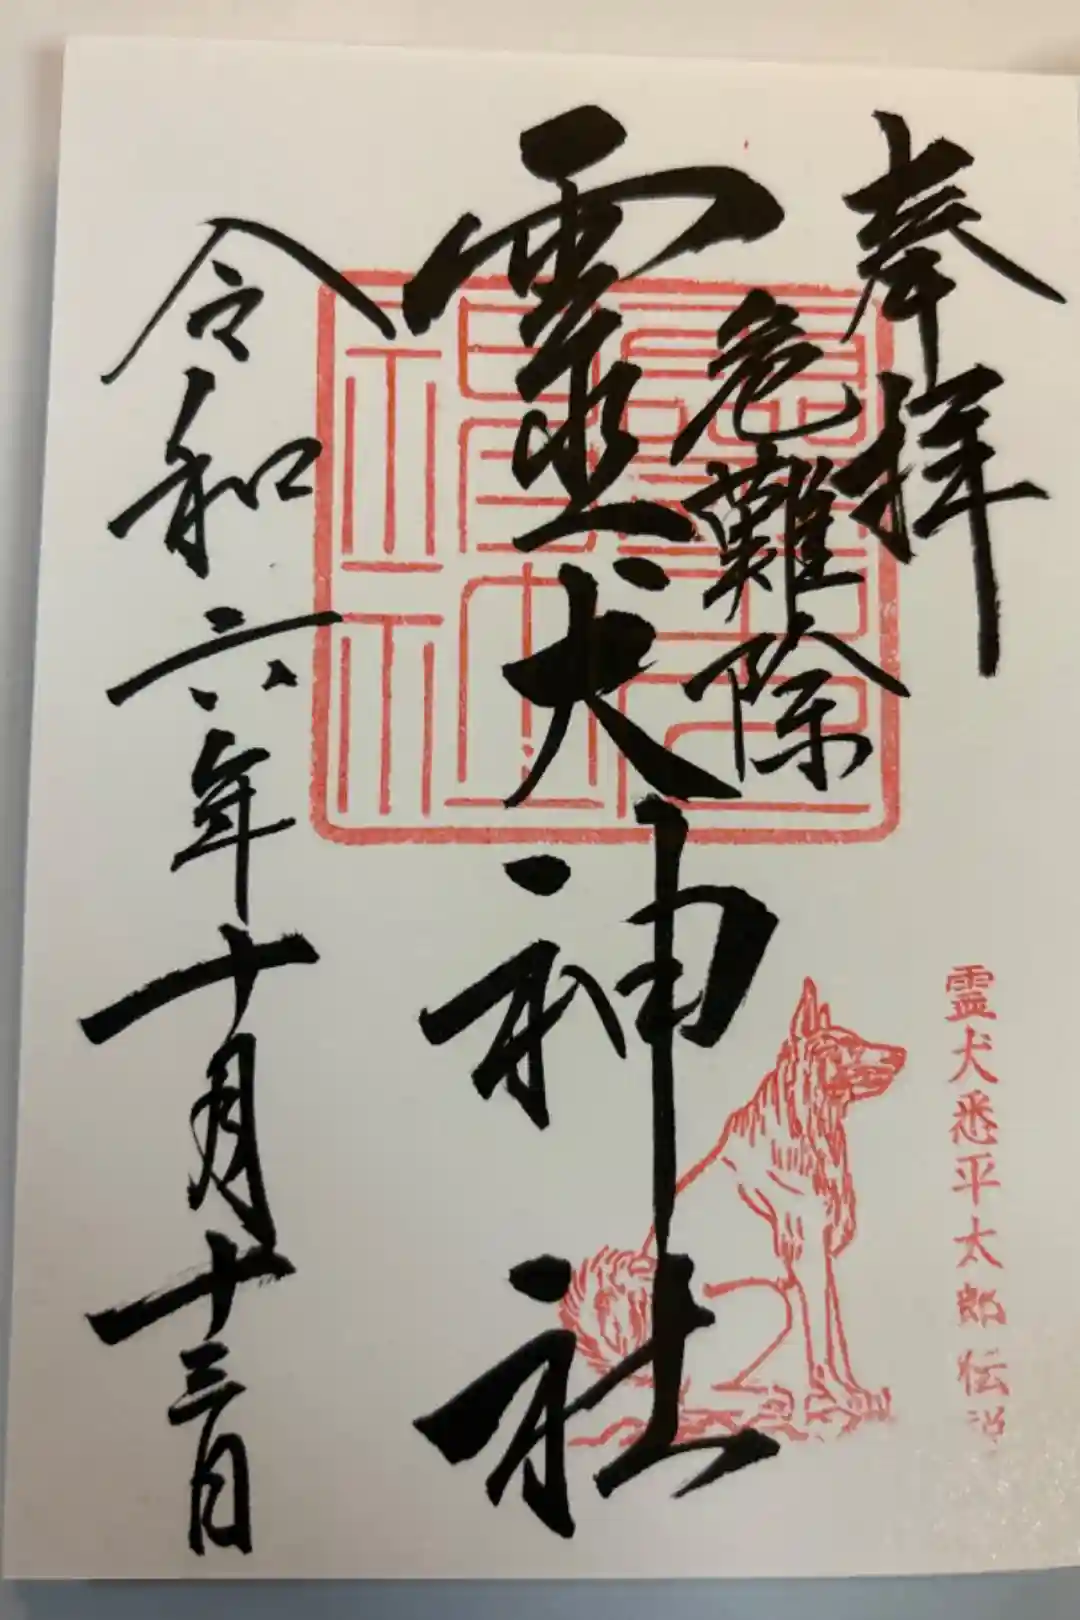 奉拝
危難除
霊犬神社
令和六年十月十三日
霊犬悉平太郎伝説